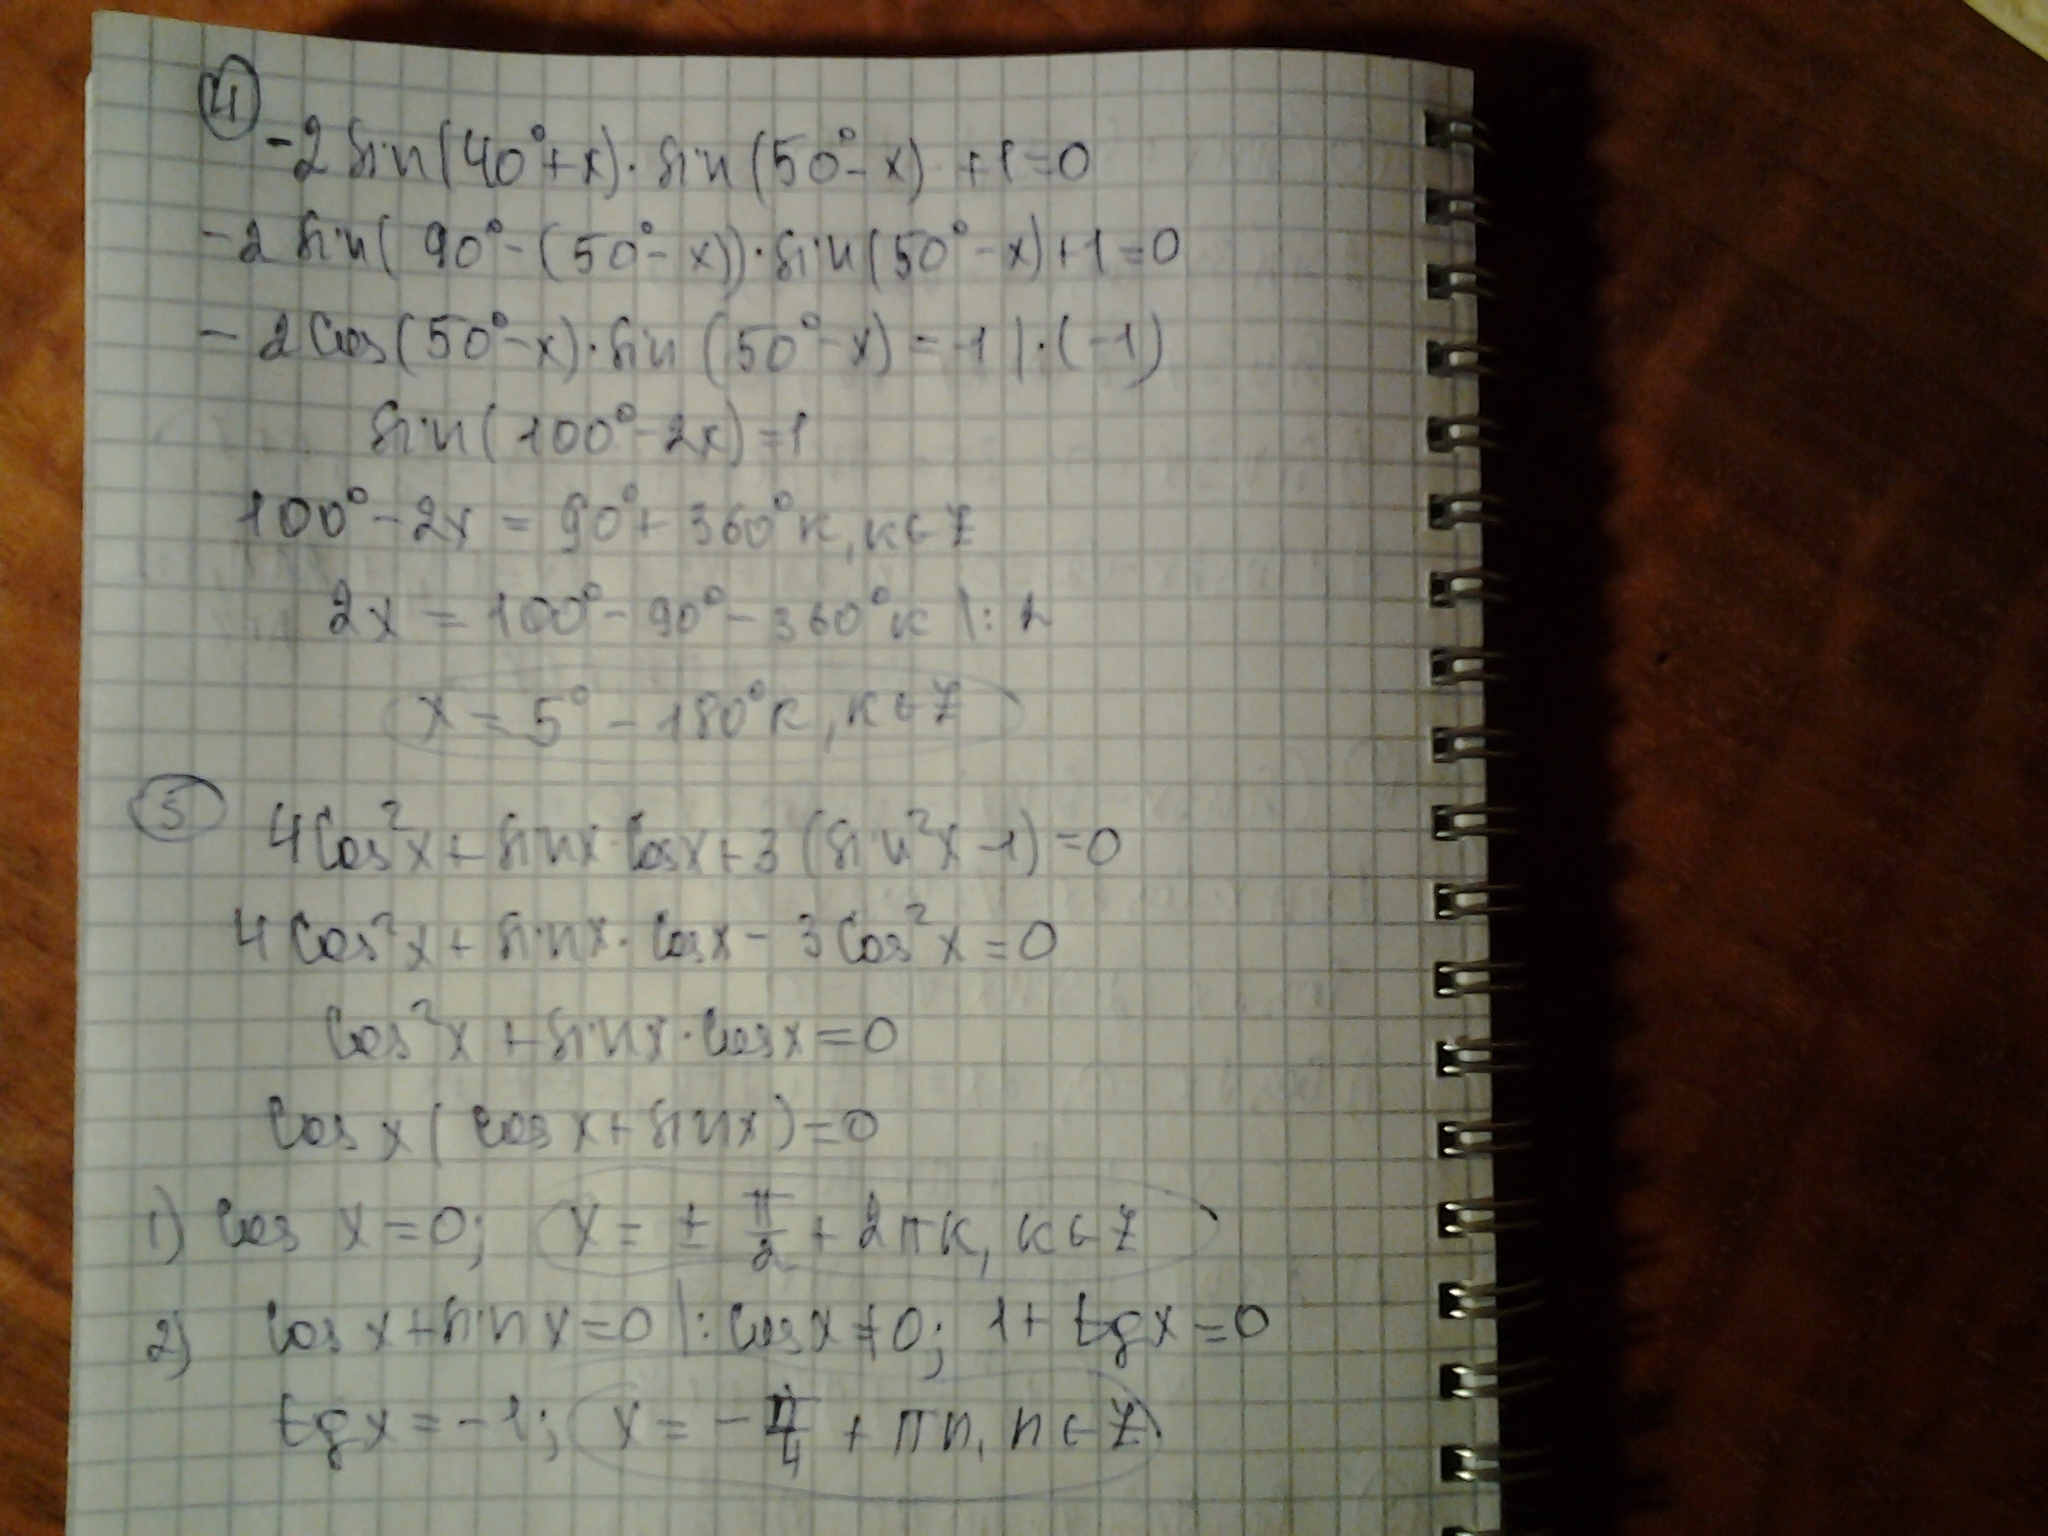 4
-2 sin(40°+x)·sin(50°-x) +1=0
-2 sin(90°-(50°-x))·sin(50°-x)+1=0
-2cos(50°-x)·sin(50°-x)=-1 |·(-1)
sin(100°-2x)=1
100°-2x = 90°+360°к, к∈Z
2x = 100°-90°-360°к |:2
x = 5°-180°к, к∈Z
5
4cos²x+sinx·cosx+3(sin²x-1)=0
4cos²x+sinx·cosx-3cos²x=0
cos²x+sinx·cosx=0
cosx(cosx+sinx)=0
1) cos x=0; x=±π/2+2πк, к∈Z
2) cosx+sinx=0 |:cosx≠0; 1+tgx=0
tgx=-1; x=-π/4+πn, n∈Z